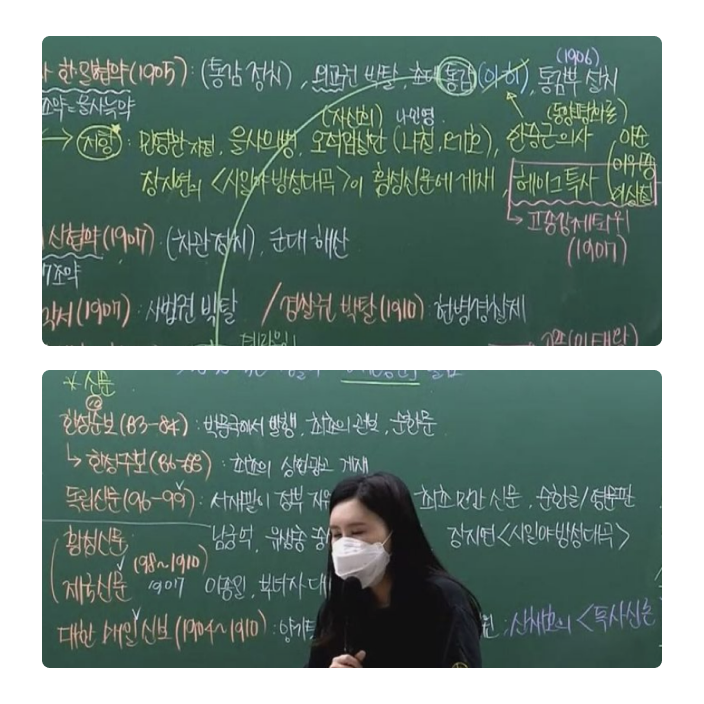 (1906)
한일협약(1905) : (통감 정치), 외교권 박탈, 초대 통감(이히), 통감부 설치
조약=을사늑약
(자신회) 나인영 (동양평화론)
→ 저항 : 민영환 자결, 을사의병, 오적암살단 (나철, 오기호), 안중근 의사 이준
장지연의 <시일야방성대곡>이 황성신문에 게재, 헤이그특사 이위종
이상설
→ 고종강제퇴위
(1907)
신협약(1907) : (차관 정치), 군대 해산
7조약
각서(1907) : 사법권 박탈 / 경찰권 박탈(1910) : 헌병경찰제
* 신문
10
한성순보(83-84) : 박문국에서 발행, 최초의 관보, 순한문
↳ 한성주보(86-88) : 최초의 상업광고 게재
독립신문(96-99) : 서재필이 정부 지원 최초 민간 신문, 순한글/영문판
황성신문 남궁억, 유상용 장지연<시일야방성대곡>
(98~1910)
제국신문 1907 이종일, 부녀자 대
대한매일신보(1904~1910) : 양기탁 신채호의 <독사신론